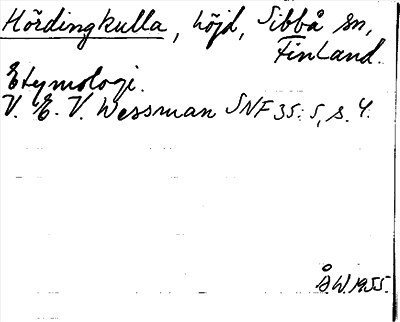 Hördingkulla, höjd, Sibbå sn,
Finland.
Etymologi.
V. E. V. Wessman SNF 35:5, s. 4.
Å.W. 1955.